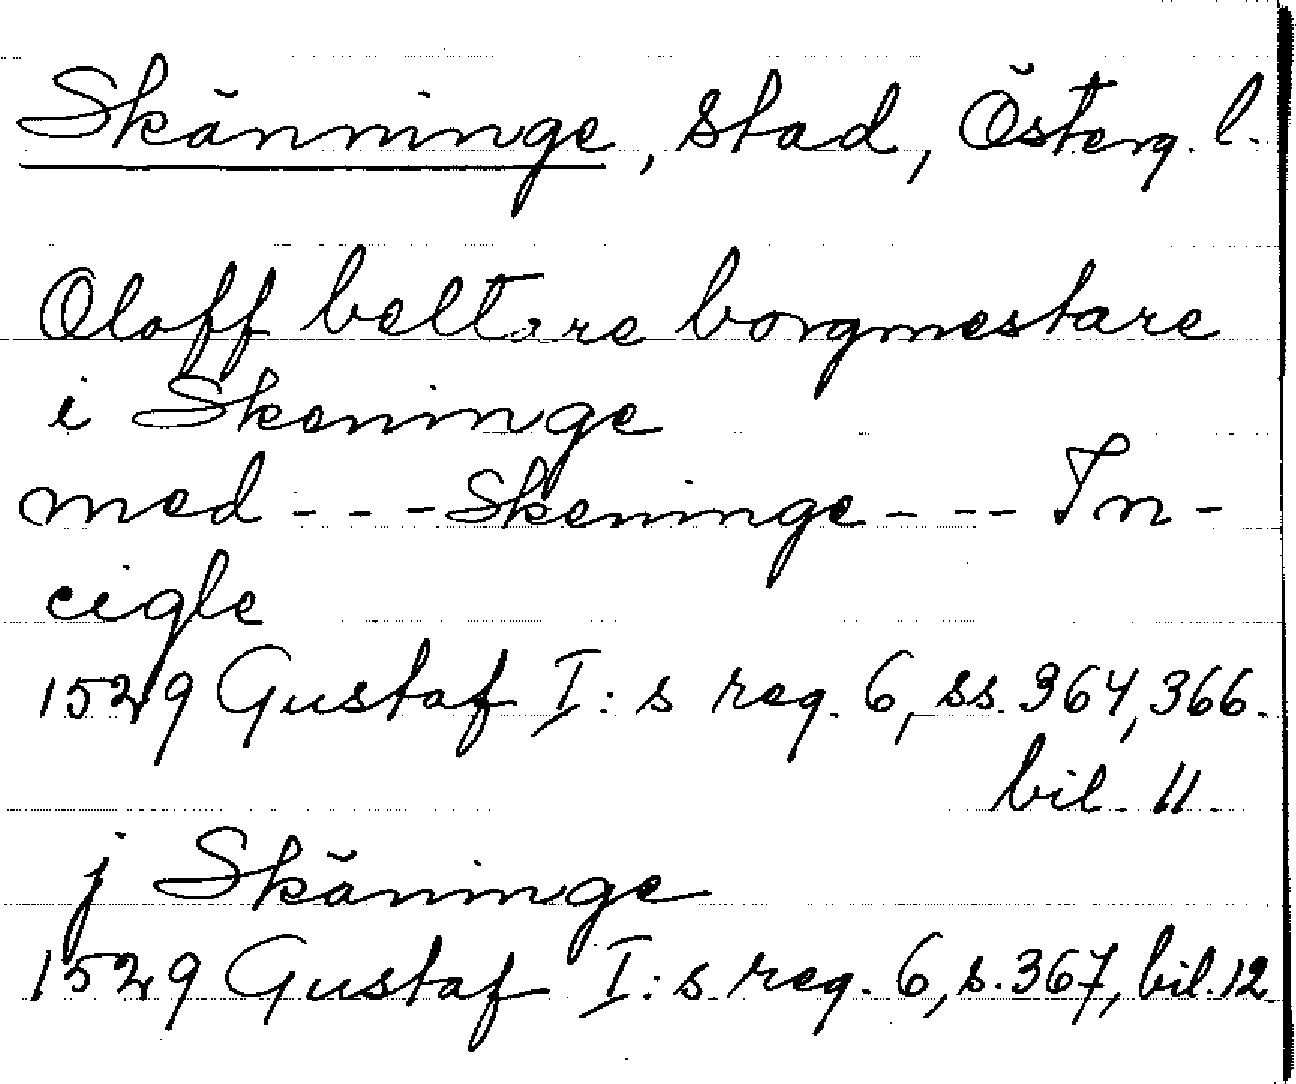 Skänninge, stad, Österg. l.
Oloff beltare borgmestare
i Skeninge
med - - - Skeninge - - - In-
cigle
1529 Gustaf I:s reg. 6, ss. 364, 366.
bil. 11.
j Skäninge
1529 Gustaf I:s reg. 6, s. 367, bil. 12